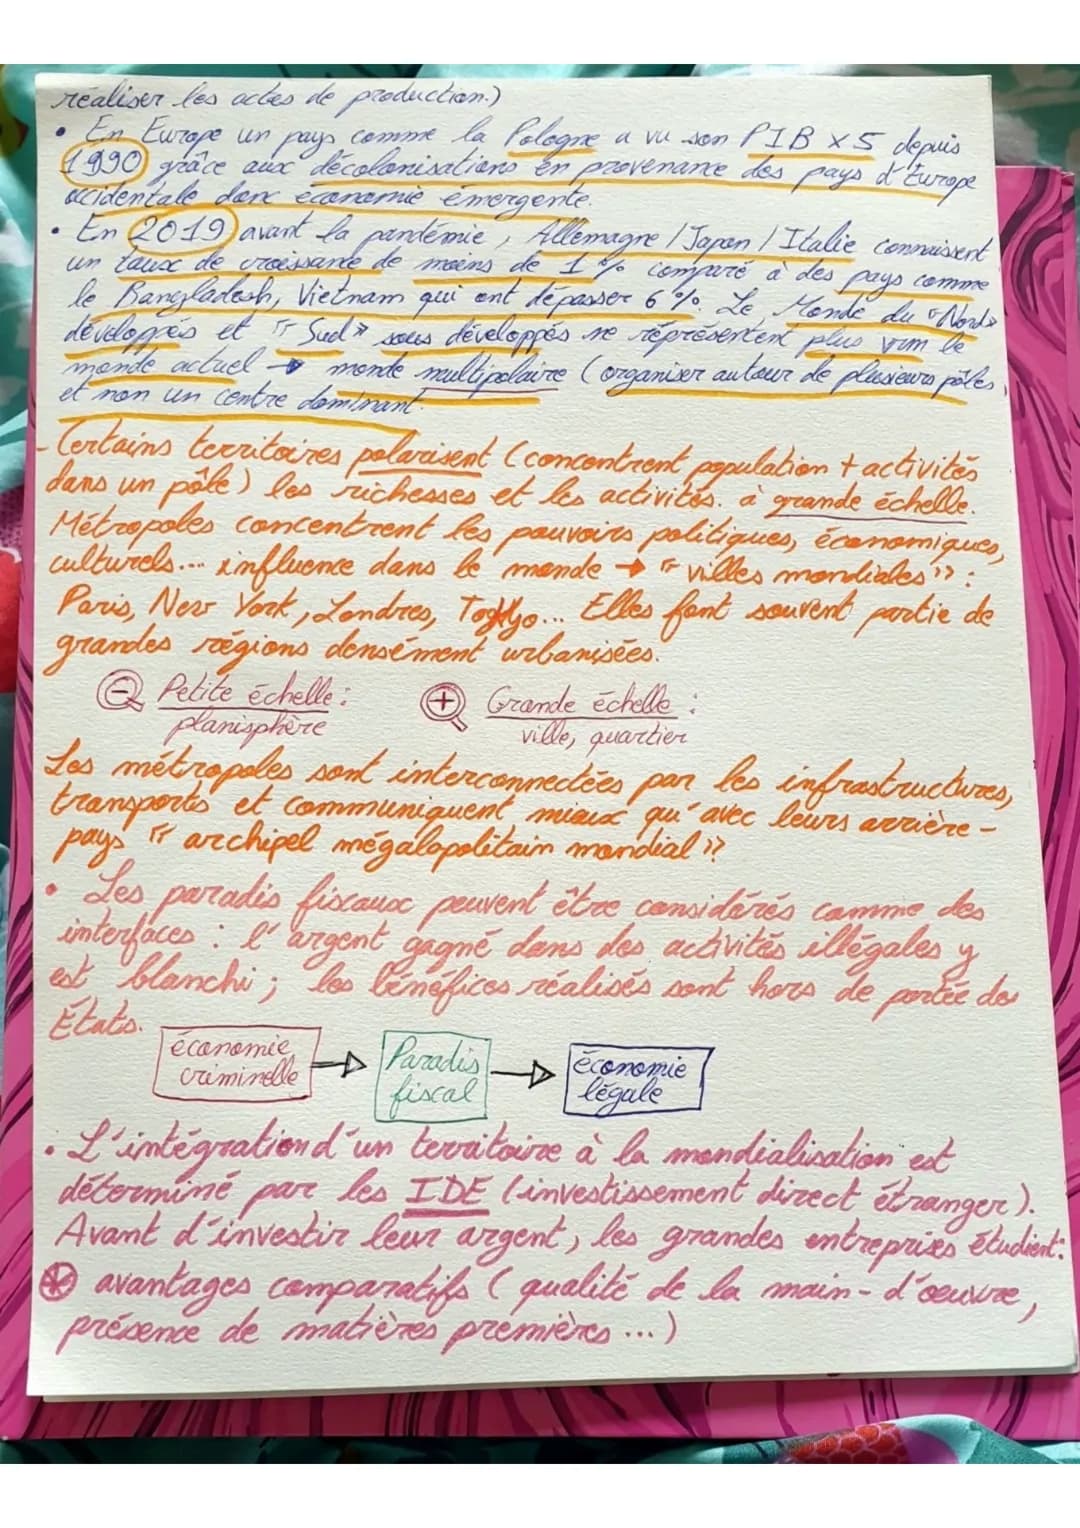 réaliser les actes de production.)
• En Europe un pays comme la Pologne a vu son PIB x5 depuis
1990 grâce aux décolonisations en provenance des pays d'Europe
occidentale donc économie émergente.
• En 2019 avant la pandémie, Allemagne / Japon / Italie connaissent
un taux de croissance de moins de 1% comparé à des pays comme
le Bangladesh, Vietnam qui ont dépasser 6%. Le Monde du "Nord»
développés et "Sud» sous développés ne représentent plus vrm le
monde actuel → monde multipolaire (organiser autour de plusieurs pôles
et non un centre dominant.
- Certains territoires polarisent (concentrent population + activités
dans un pôle) les richesses et les activités. à grande échelle.
Métropoles concentrent les pouvoirs politiques, économiques,
culturels... influence dans le monde → "villes mondiales»:
Paris, New York, Londres, Tokyo... Elles font souvent partie de
grandes régions densément urbanisées.
- Petite échelle: + Grande échelle:
planisphère ville, quartier
Les métropoles sont interconnectées par les infrastructures,
transports et communiquent mieux qu'avec leurs arrière-
pays "archipel mégalopolitain mondial»
• Les paradis fiscaux peuvent être considérés comme des
interfaces : l'argent gagné dans des activités illégales y
est blanchi; les bénéfices réalisés sont hors de portée des
États.
économie → Paradis → économie
criminelle fiscal légale
• L'intégration d'un territoire à la mondialisation est
déterminé par les IDE (investissement direct étranger).
Avant d'investir leur argent, les grandes entreprises étudient:
* avantages comparatifs (qualité de la main-d'œuvre,
présence de matières premières...)